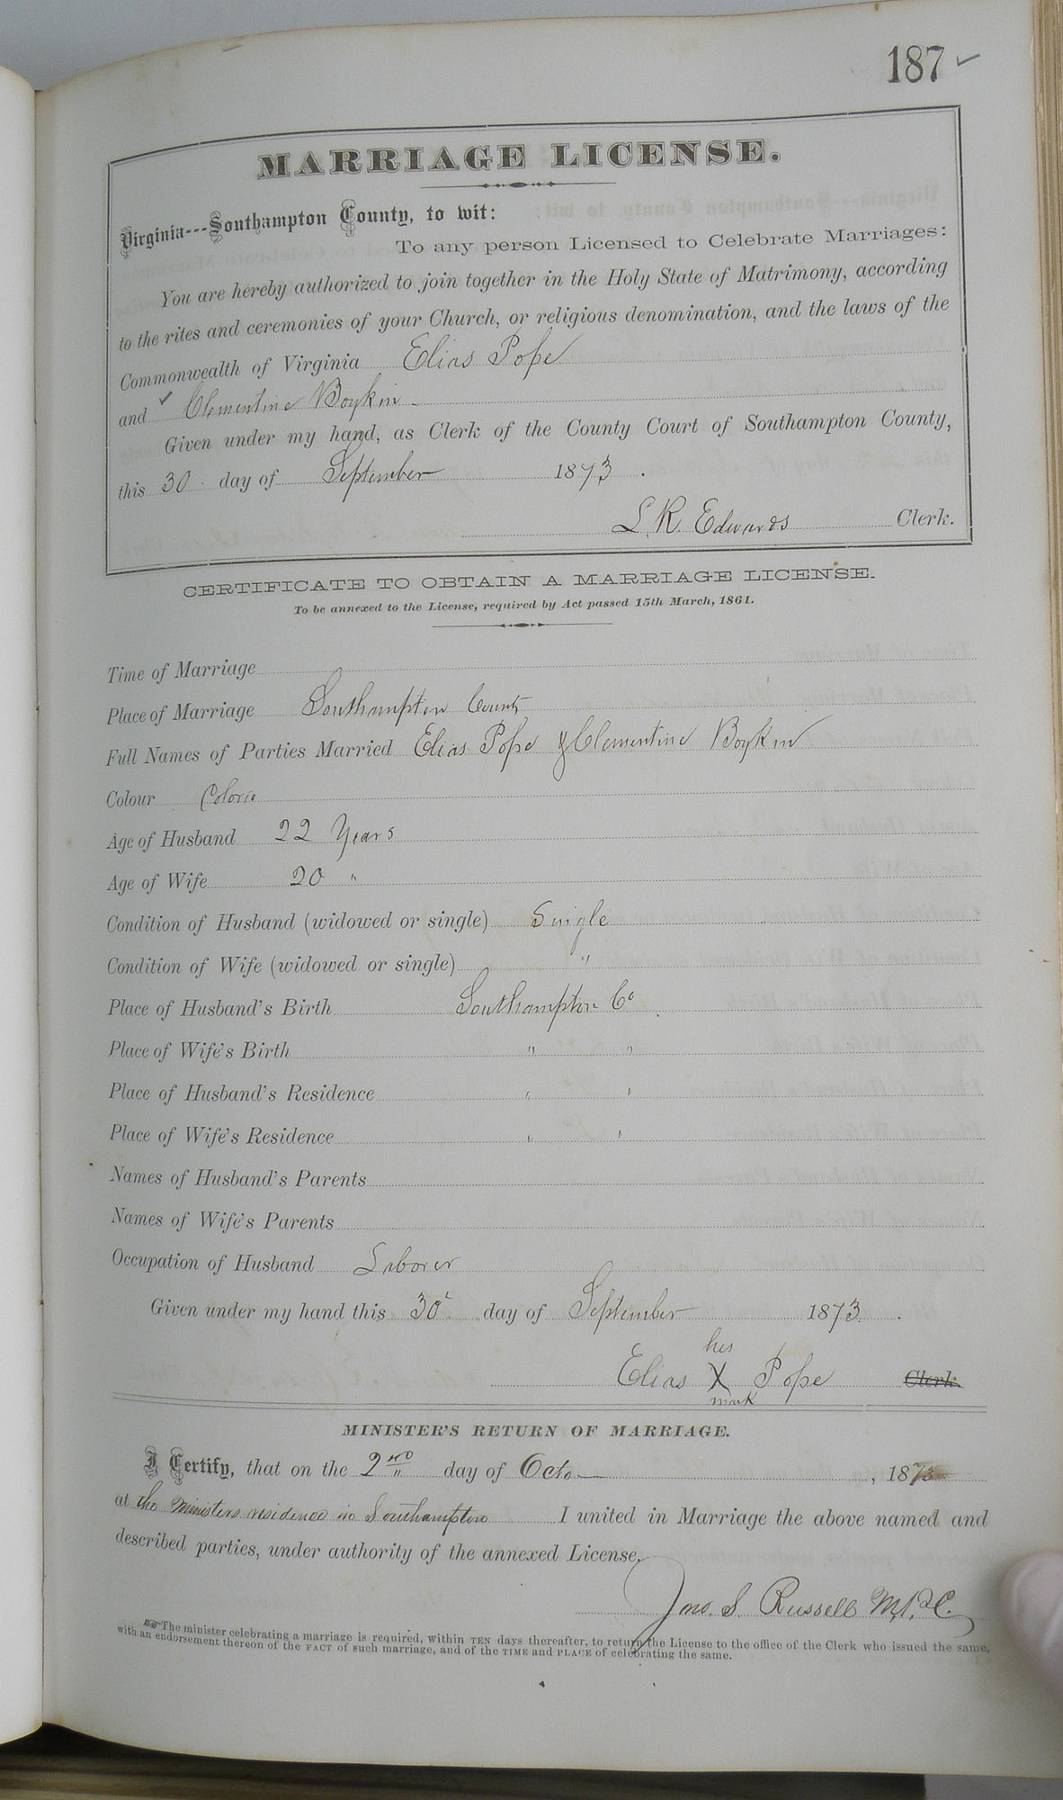 187 ✓
MARRIAGE LICENSE.
Virginia---Southampton County, to wit:
To any person Licensed to Celebrate Marriages:
You are hereby authorized to join together in the Holy State of Matrimony, according
to the rites and ceremonies of your Church, or religious denomination, and the laws of the
Commonwealth of Virginia Elias Pope
and ✓ Clementine Boykin
Given under my hand, as Clerk of the County Court of Southampton County,
this 30 day of September 1873.
L. R. Edwards Clerk.
CERTIFICATE TO OBTAIN A MARRIAGE LICENSE.
To be annexed to the License, required by Act passed 15th March, 1861.
Time of Marriage
Place of Marriage Southampton County
Full Names of Parties Married Elias Pope & Clementine Boykin
Colour
Age of Husband 22 Years
Age of Wife 20 "
Condition of Husband (widowed or single) Single
Condition of Wife (widowed or single) "
Place of Husband's Birth Southampton Co
Place of Wife's Birth " "
Place of Husband's Residence " "
Place of Wife's Residence " "
Names of Husband's Parents
Names of Wife's Parents
Occupation of Husband Laborer
Given under my hand this 30 day of September 1873.
his
Elias X Pope Clerk
mark
MINISTER'S RETURN OF MARRIAGE.
I Certify, that on the 2nd day of Octo , 1873
at the Ministers residence in Southampton I united in Marriage the above named and
described parties, under authority of the annexed License.
Jno. S. Russell
The minister celebrating a marriage is required, within TEN days thereafter, to return the License to the office of the Clerk who issued the same,
with an endorsement thereon of the FACT of such marriage, and of the TIME and PLACE of celebrating the same.